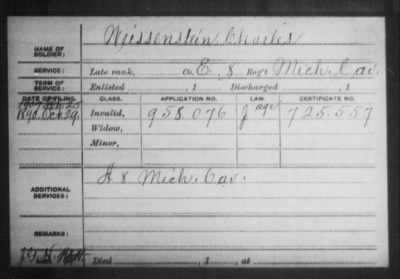 Weissenstein, Charles
NAME OF SOLDIER:
SERVICE: Late rank, Co. E, 8 Reg't Mich. Cav.
TERM OF SERVICE: Enlisted , 1 Discharged , 1
DATE OF FILING. CLASS. APPLICATION NO. LAW. CERTIFICATE NO.
1890 Oct. 29 Invalid, 958.076 725.557
Widow,
Minor,
ADDITIONAL SERVICES: H 8 Mich. Cav.
REMARKS:
Died , 1 , at